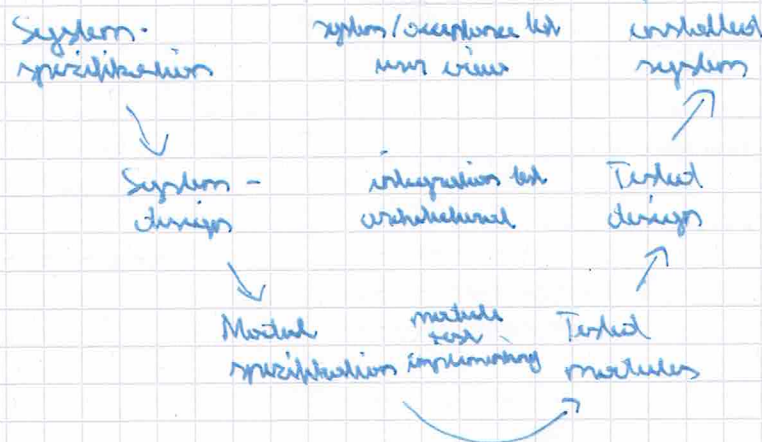 System-
spezifikation
system/acceptance test
user view
installed
system
System-
design
integration test
architectural
Tested
design
Modul
spezifikation
module
test
implementing
Tested
modules